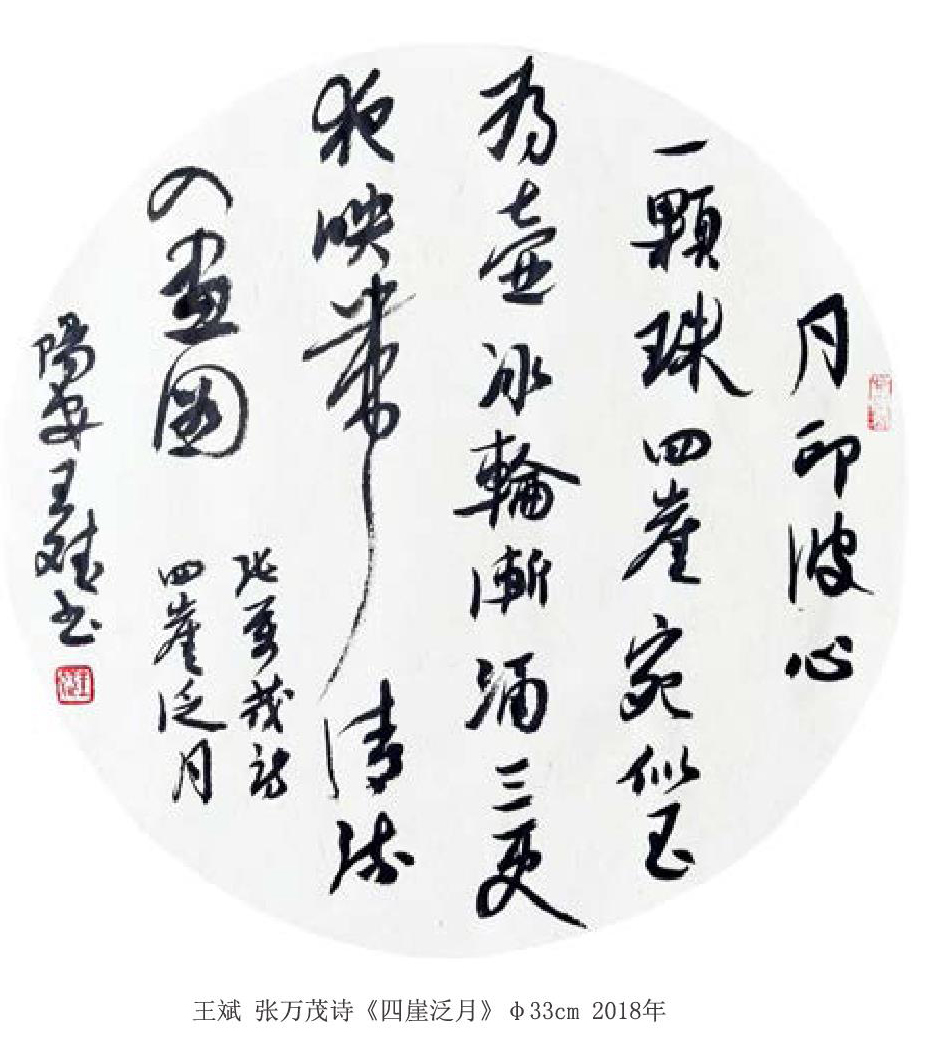 月印波心
一顆珠四崖宛似玉
为壶冰輪漸涌三更
夜映带清波
入畫图
张万茂诗
四崖泛月
陽安王斌书
王斌 张万茂诗《四崖泛月》φ33cm 2018年